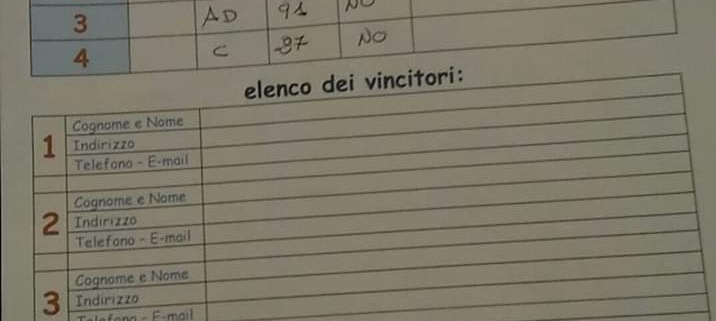 3 AD 91 NO
4 C 87 NO
elenco dei vincitori:
1
Cognome e Nome
Indirizzo
Telefono - E-mail
2
Cognome e Nome
Indirizzo
Telefono - E-mail
3
Cognome e Nome
Indirizzo
Telefono - E-mail